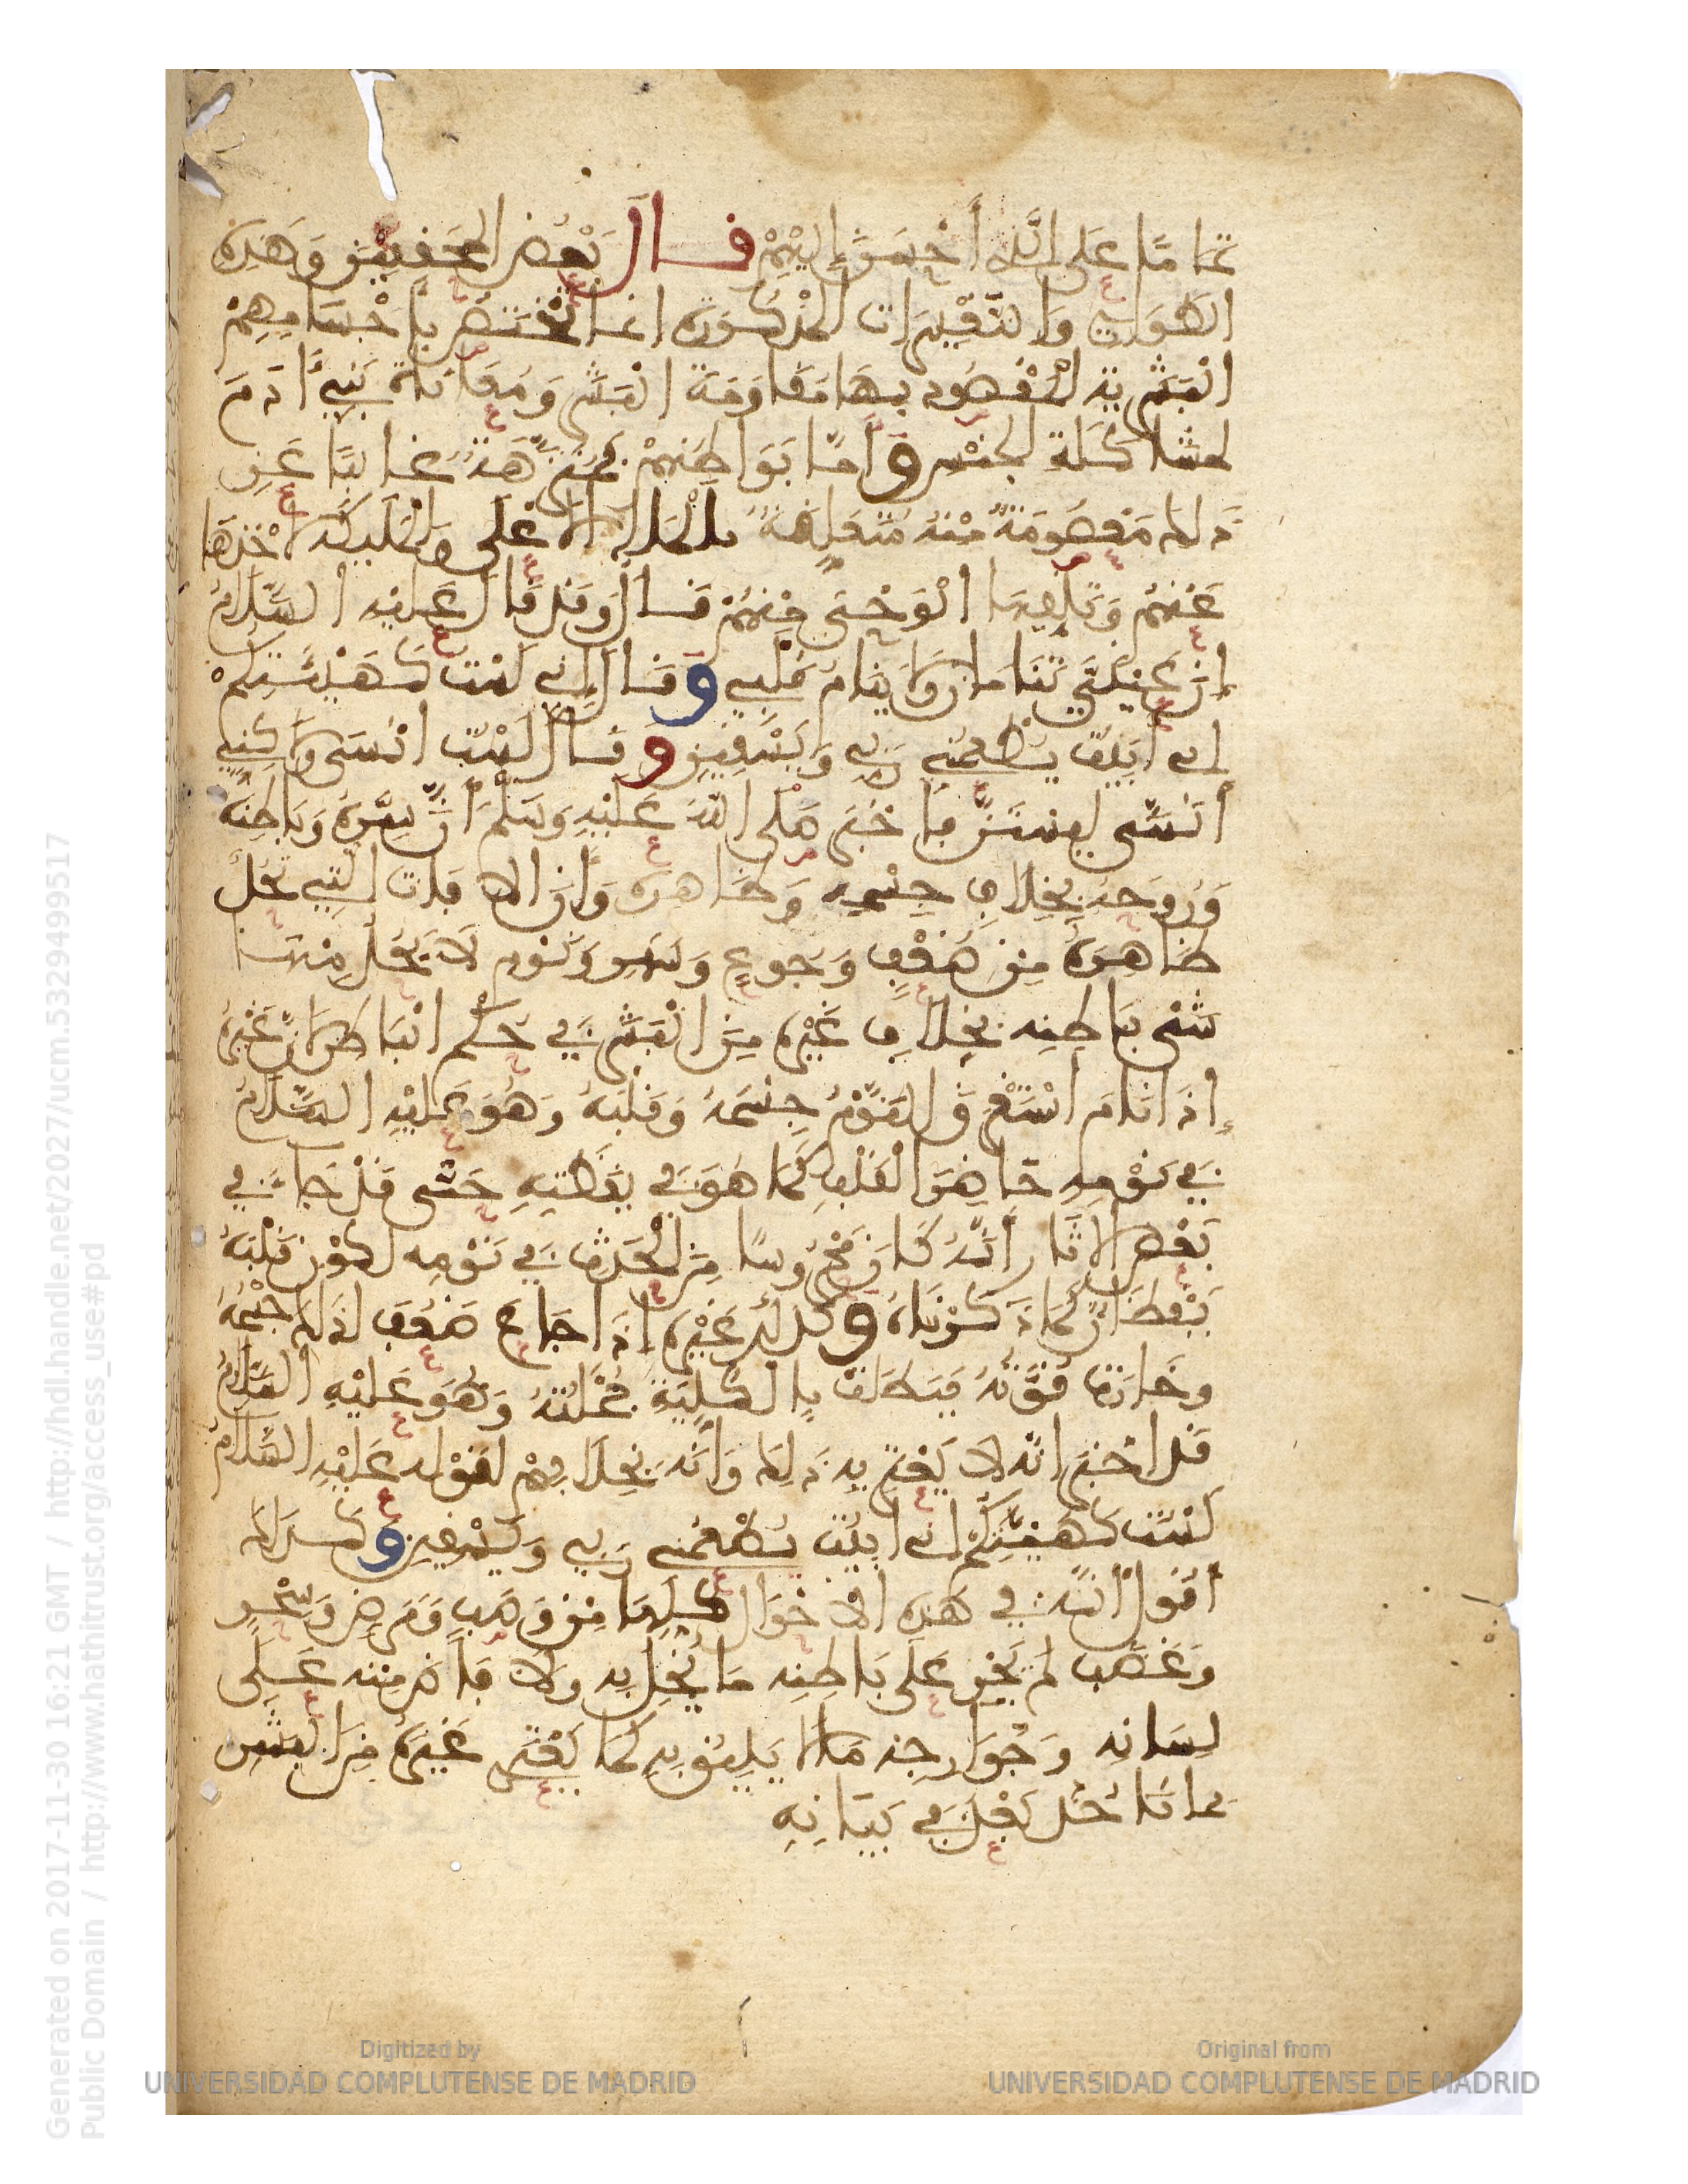 تماما على الذي أحسن إليهم قال بعض المحققين وهذه
الطواري والتغييرات المذكورة انما تختص بأجسامهم
البشرية المقصود بها مقاومة البشر ومعاناة بني ءادم
لمشاكلة الجنس وأما بواطنهم فمنزهة غالبا عن
ذلك معصومة منه متعلقة بالملإ الأعلى والملائكة لأخذها
عنهم وتلقيها الوحي منهم قال وقد قال عليه السلام
إن عيني تنامان ولا ينام قلبي وقال إني لست كهيئتكم
إني أبيت يطعمني ربي ويسقيني وقال لست أنسى ولكن
أنسى ليستن بي فأخبر صلى الله عليه وسلم أن سره وباطنه
وروحه بخلاف جسمه وظاهره وأن الآفات التي تحل
ظاهره من ضعف وجوع وسهر ونوم لا يحل منها
شيء باطنه بخلاف غيره من البشر في حكم الباطن لأن غيره
إذا نام استغرق النوم جسمه وقلبه وهو عليه السلام
في نومه حاضر القلب كما هو في يقظته حتى قد جاء في
بعض الآثار أنه كان محروسا من الحدث في نومه لكون قلبه
يقظان كما ذكرناه وكذلك غيره إذا جاع ضعف لذلك جسمه
وخارت قوته فبطلت بالكلية جملته وهو عليه السلام
قد أخبر أنه لا يعتريه ذلك وأنه بخلافهم لقوله عليه السلام
لست كهيئتكم إني أبيت يطعمني ربي ويسقيني وكذلك
أقول أنه في هذه الأحوال كلها من وصب ومرض وسحر
وغضب لم يجر على باطنه ما يخل به ولا فاض منه على
لسانه وجوارحه ما لا يليق به كما يعتري غيره من البشر
مما نأخذ بعد في بيانه
Generated on 2017-11-30 16:21 GMT / http://hdl.handle.net/2027/ucm.5329499517
Public Domain / http://www.hathitrust.org/access_use#pd
Digitized by
UNIVERSIDAD COMPLUTENSE DE MADRID
Original from
UNIVERSIDAD COMPLUTENSE DE MADRID